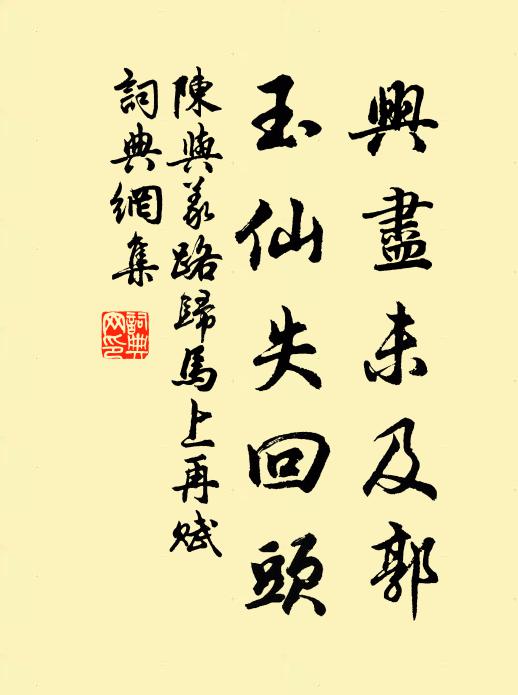 興盡未及郭
玉仙失回頭
陳與義路歸馬上再賦
詞典網集
詞典
网印